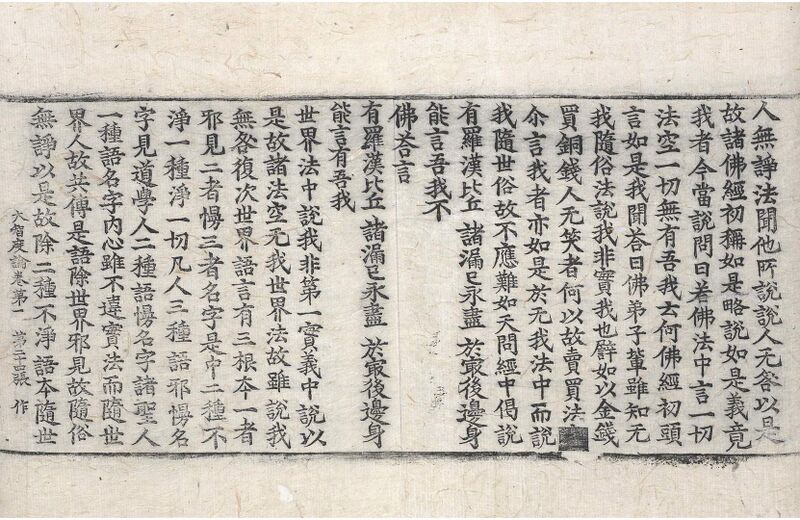 人無諍法聞他所說說人无咎以是
故諸佛經初稱如是略說如是義竟
我者今當說問曰若佛法中言一切
法空一切無有吾我云何佛經初頭
言如是我聞荅曰佛弟子輩雖知无
我隨俗法說我非實我也譬如以金錢
買銅錢人无笑者何以故賣買法
尒言我者亦如是於无我法中而說
我隨世俗故不應難如天問經中偈說
有羅漢比丘 諸漏已永盡 於最後邊身
能言吾我不
佛荅言
有羅漢比丘 諸漏已永盡 於最後邊身
能言有吾我
世界法中說我非第一實義中說以
是故諸法空无我世界法故雖說我
無咎復次世界語言有三根本一者
邪見二者慢三者名字是中二種不
淨一種淨一切凡人三種語邪慢名
字見道學人二種語慢名字諸聖人
一種語名字內心雖不違實法而隨世
界人故共傳是語除世界邪見故隨俗
無諍以是故除二種不淨語本隨世
大智度論卷第一 第二 張 作